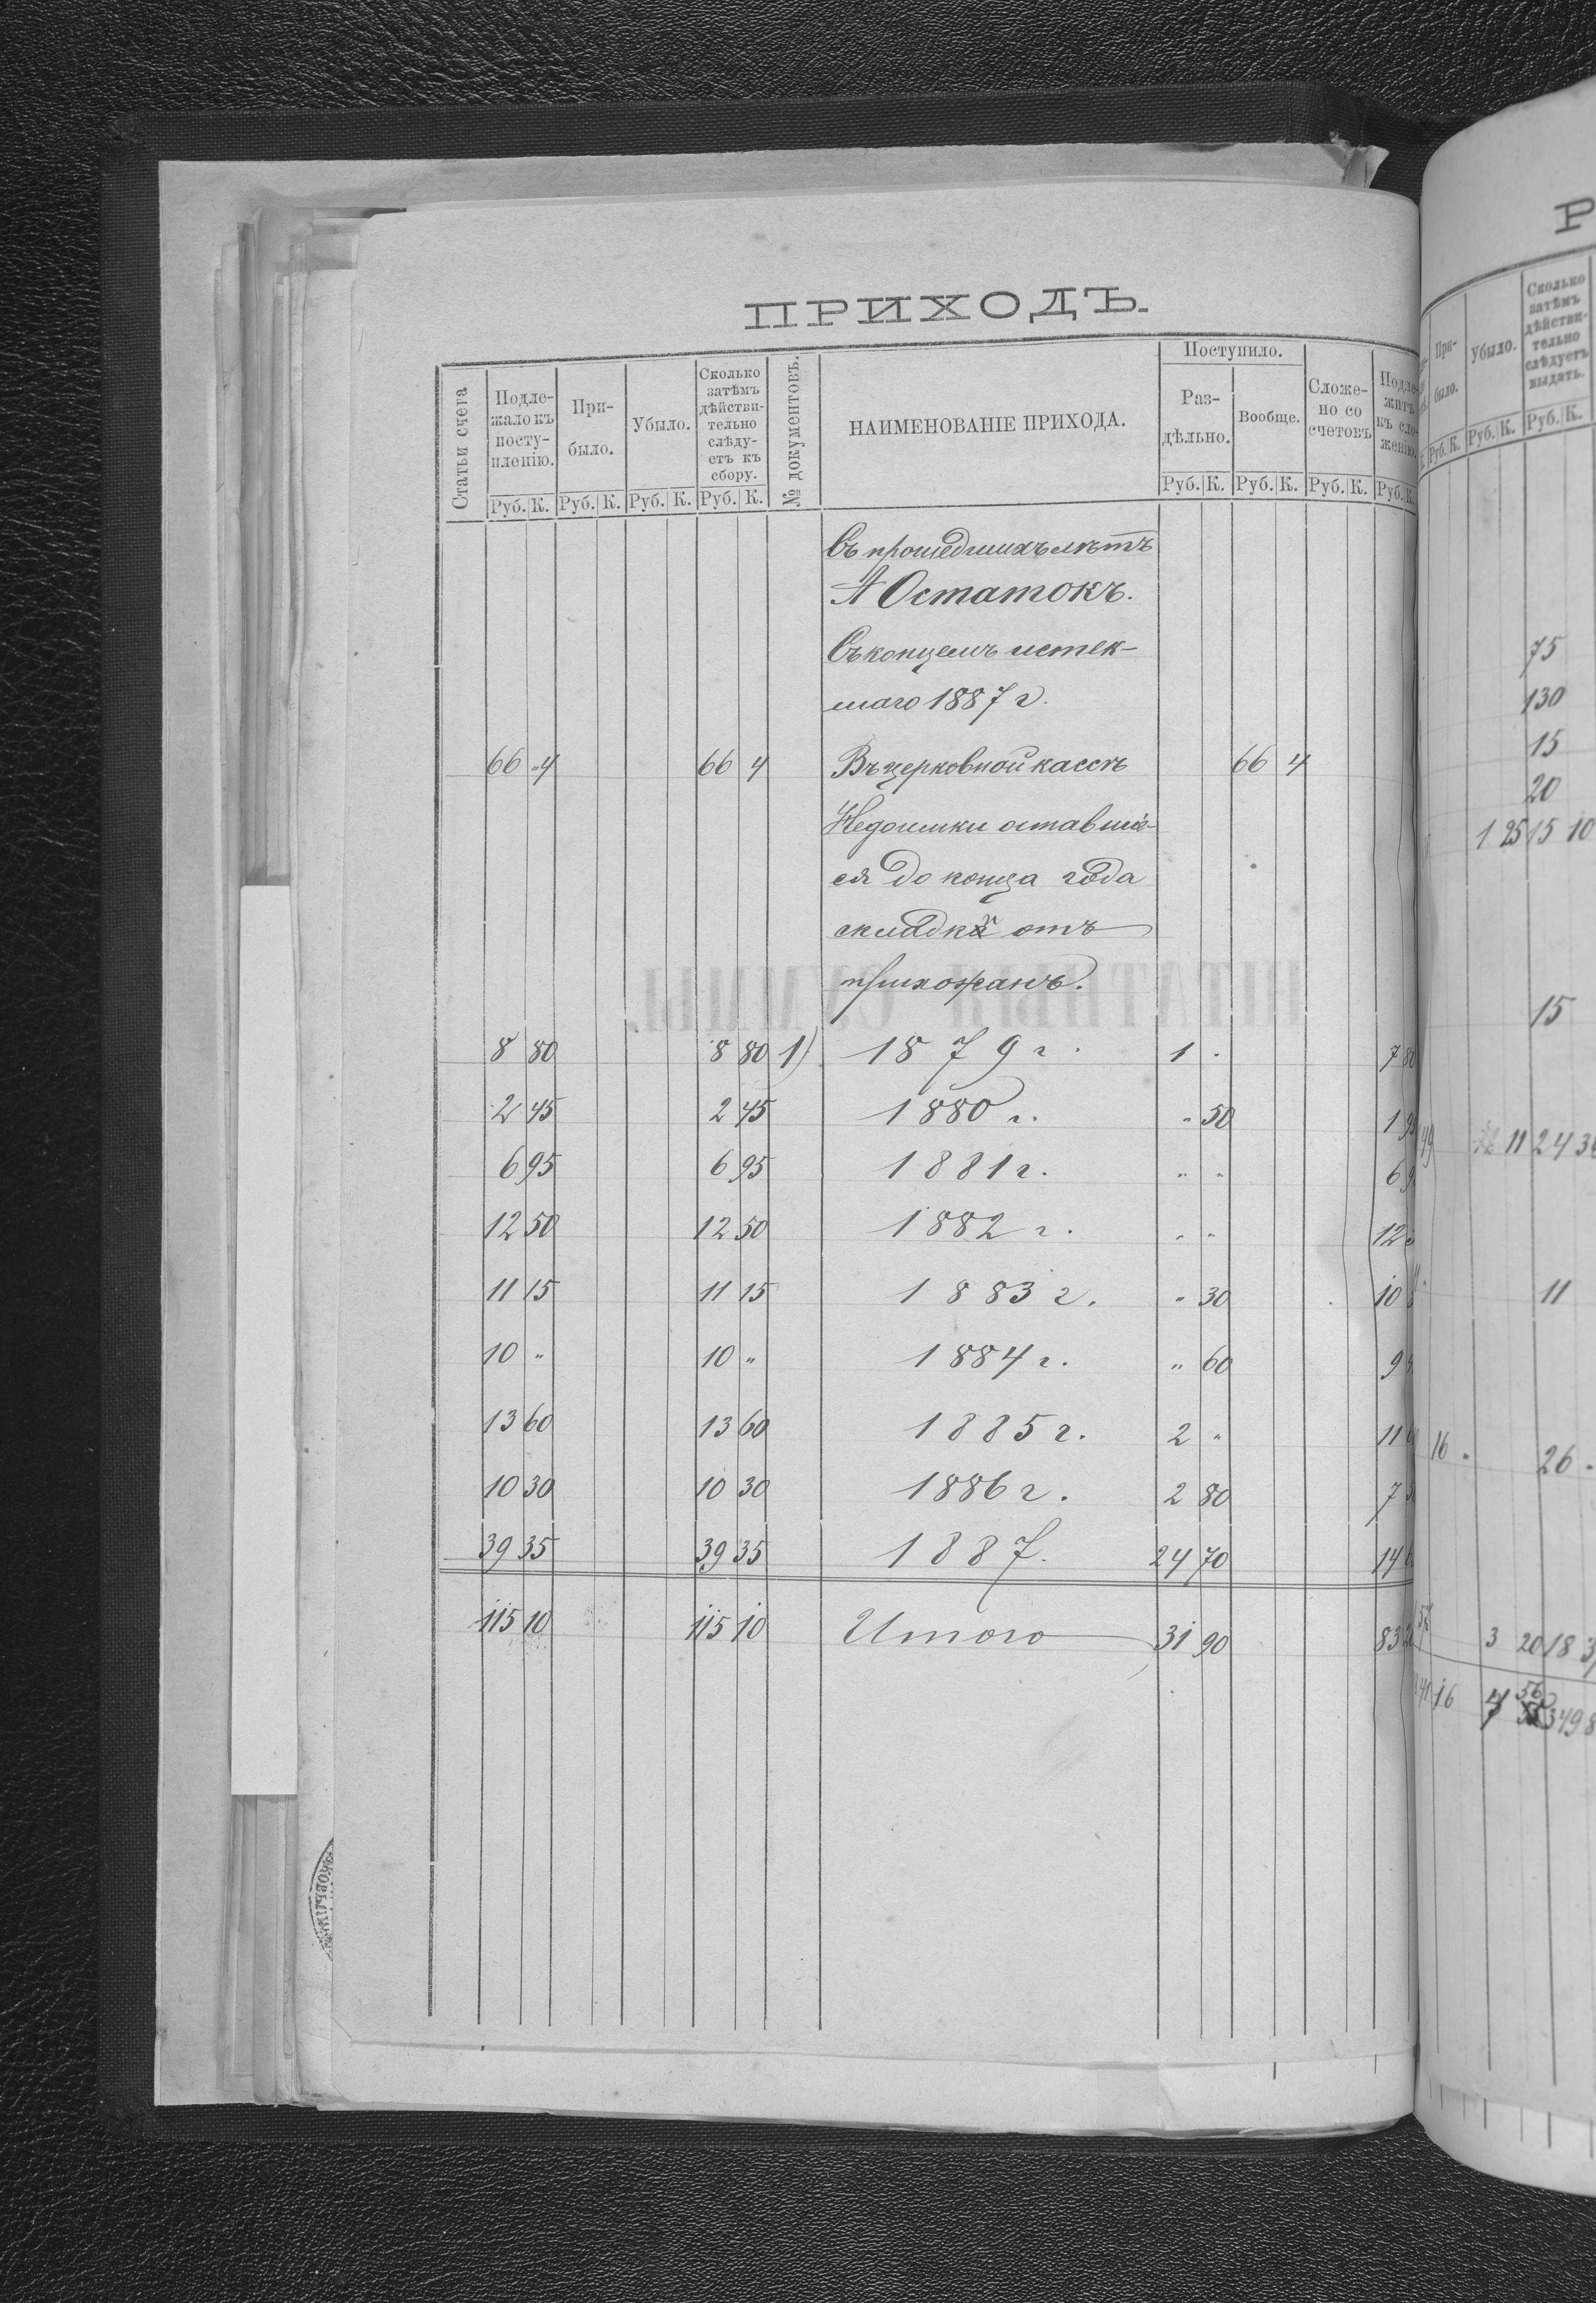 ПРИХОДЪ.
Статьи счета | Подлежало къ поступленію. | Прибыло. | Убыло. | Сколько затѣмъ дѣйствительно слѣдуетъ къ сбору. | № документовъ. | НАИМЕНОВАНІЕ ПРИХОДА. | Поступило. Раздѣльно. | Вообще. | Сложено со счетовъ | Подлежитъ къ сложенію.
Руб. К. Руб. К. Руб. К. Руб. К. Руб. К. Руб. К. Руб. К. Руб. К.
Съ прошедшихъ лѣтъ
А Остатокъ.
Съ концемъ истек-
шаго 1887 г.
66 "4 66 4 Въ церковной кассѣ 66 4
Недоимки оставшіе-
ся до конца года
складкѣ отъ
прихожанъ.
8 80 8 80 1) 1879 г. 1 . 7 80
2 45 2 45 1880 г. " 50 1 95
6 95 6 95 1881 г. " " 6
12 50 12 50 1882 г. " " 12
11 15 11 15 1883 г. " 30 10
10 " 10 " 1884 г. " 60 9
13 60 13 60 1885 г. 2 " 11
10 30 10 30 1886 г. 2 80 7
39 35 39 35 1887. 24 70 14
115 10 115 10 Итого 31 90 83
Р
При-было. Убыло. Сколько затѣмъ дѣйствительно слѣдуетъ выдать.
Руб. К. Руб. К. Руб. К.
75
130
15
20
1 25 15 10
15
49 11 24 3
11
16 . 26 .
3 20 18 3
16 4 56 349 8